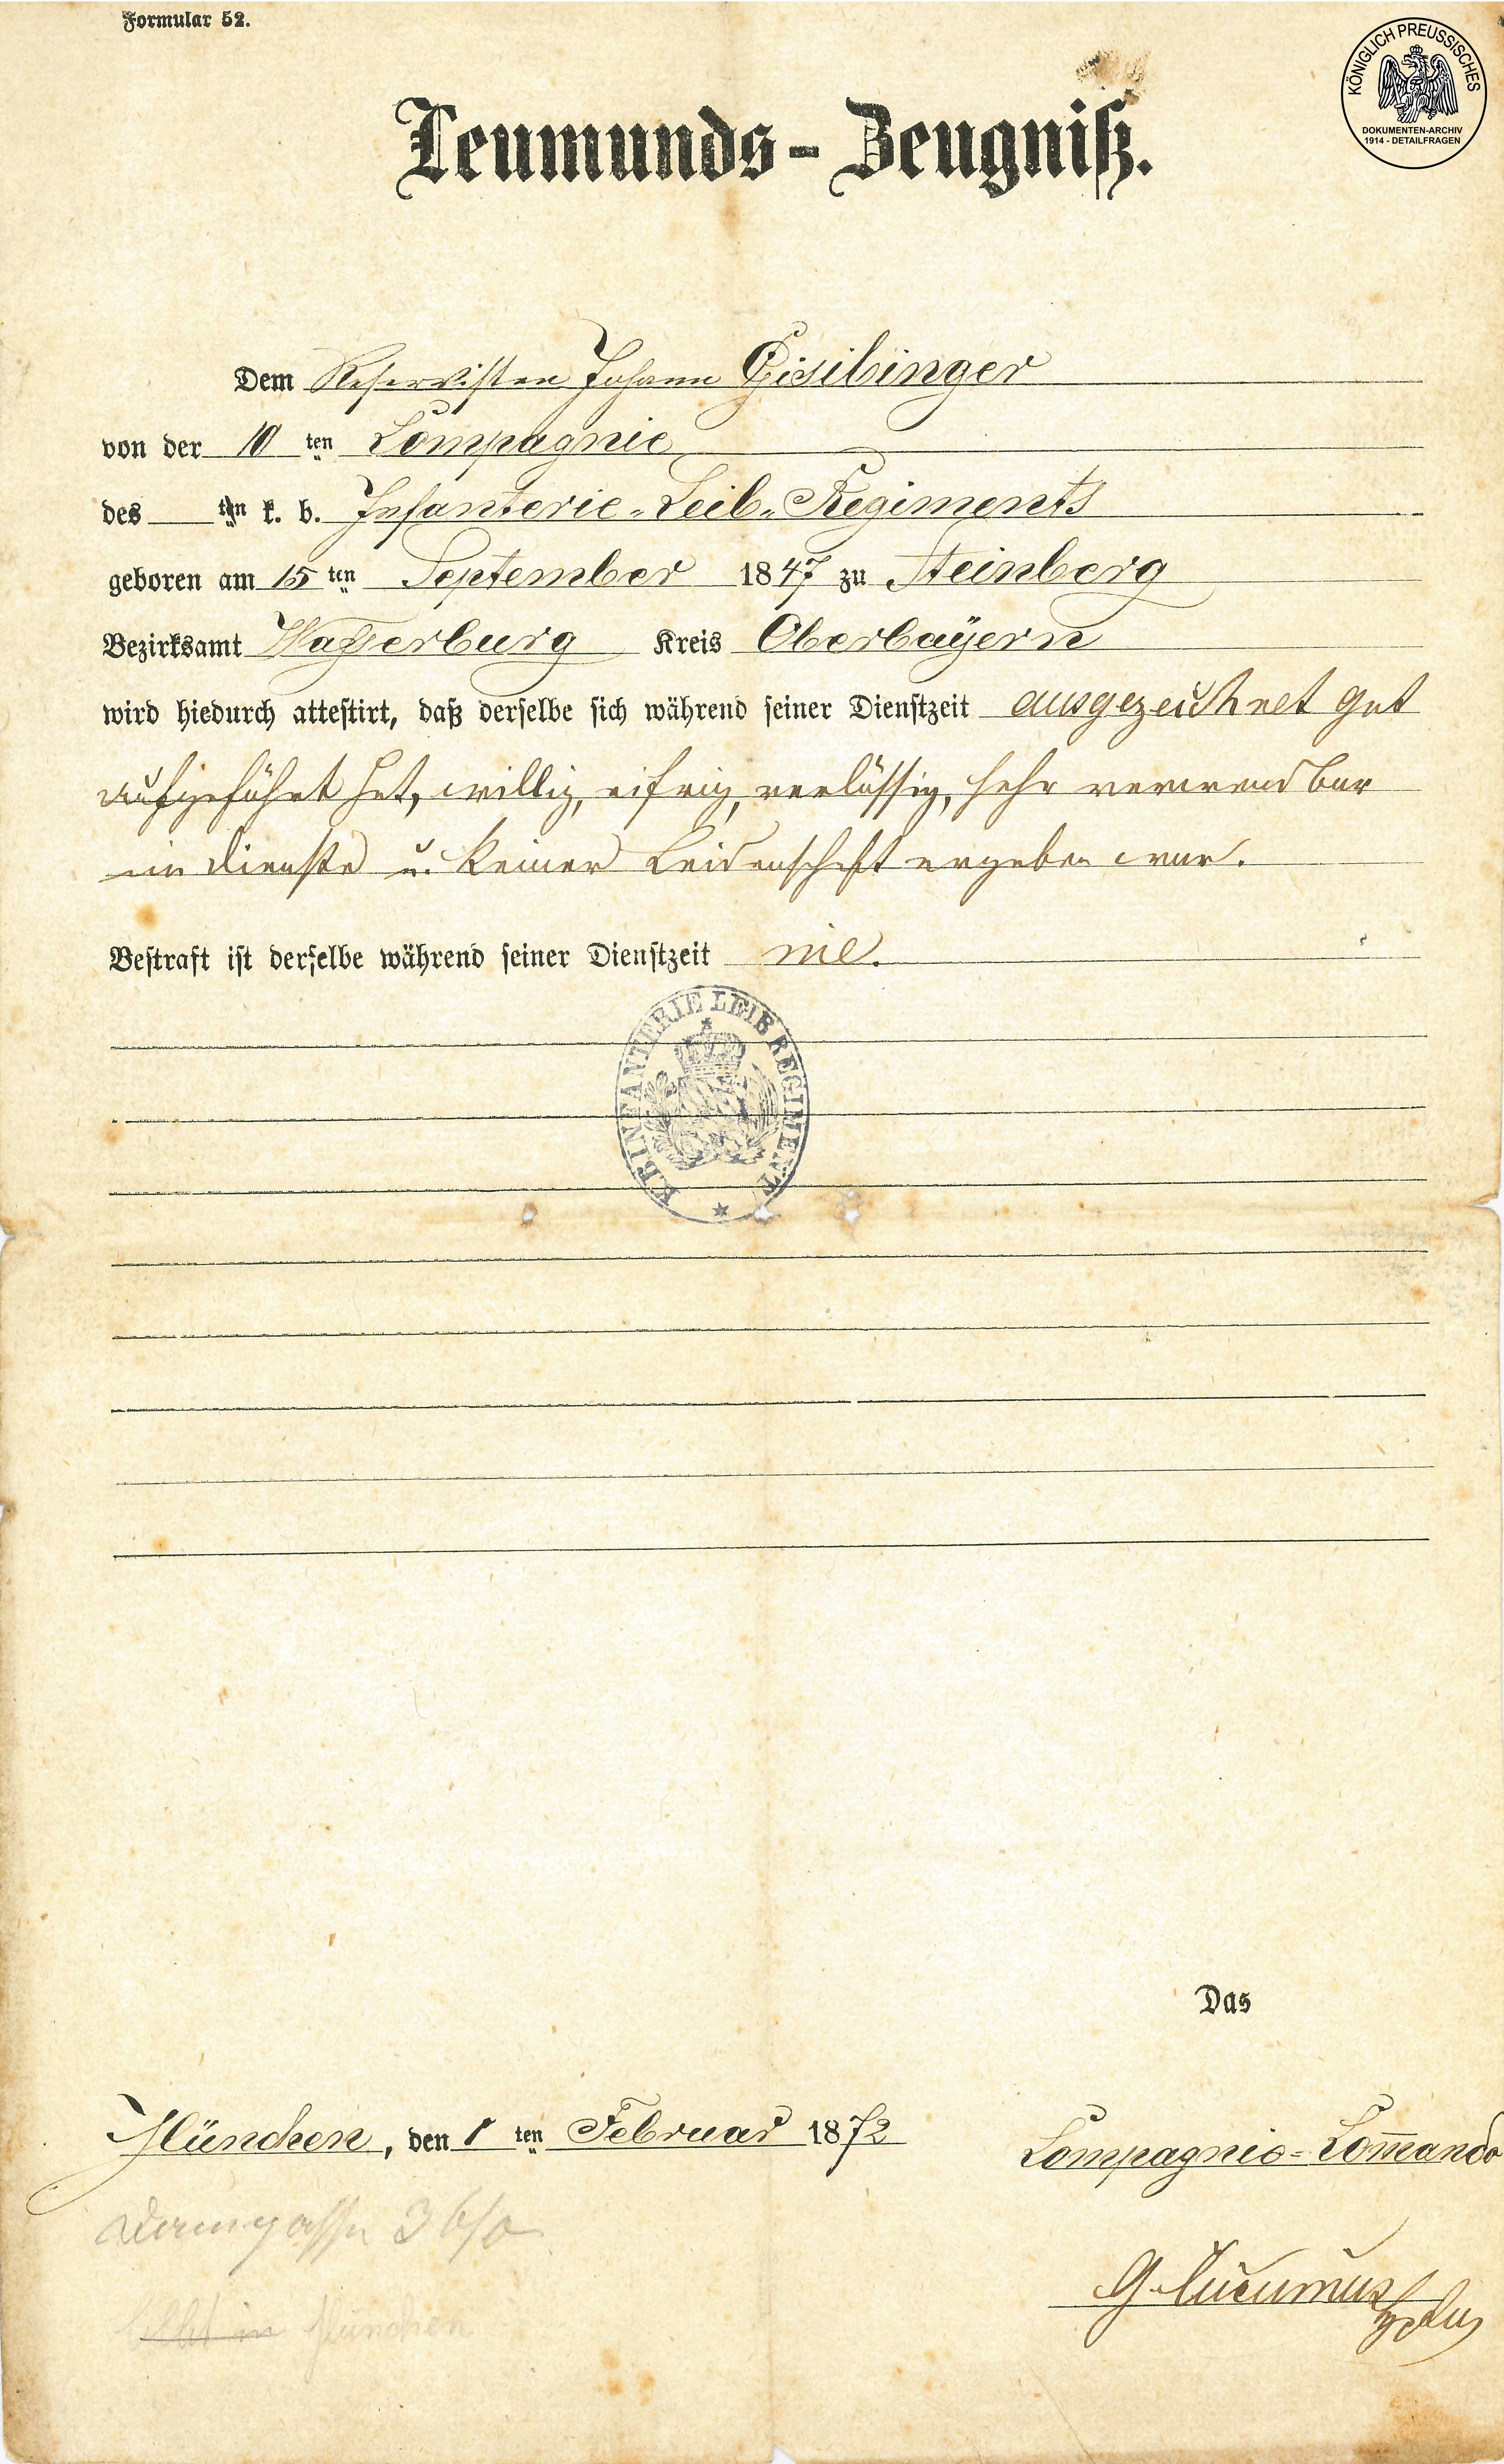 Formular 52.
KÖNIGLICH PREUSSISCHES
DOKUMENTEN-ARCHIV
1914 - DETAILFRAGEN
Leumunds-Zeugniß.
Dem Reservisten Johann Gisibinger
von der 10 ten Compagnie
des ten k. b. Infanterie-Leib-Regiments
geboren am 15 ten September 1847 zu Steinberg
Bezirksamt Wasserburg Kreis Oberbayern
wird hiedurch attestirt, daß derselbe sich während seiner Dienstzeit ausgezeichnet gut
aufgeführt hat, willig, eifrig, verlässig, sehr verwendbar
im Dienste u. keiner Leidenschaft ergeben war.
Bestraft ist derselbe während seiner Dienstzeit nie.
K.B. INFANTERIE LEIB REGIMENT
Das
München, den 1 ten Februar 1872
Compagnie-Com̄ando
in München